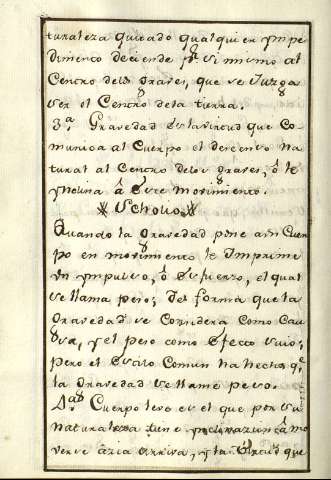 turaleza quitado qualquier ympe
dimento deciende pr. si mismo al
Centro delos graves, que se Juzga
ser el Centro dela tierra.
3.a Gravedad es la virtud que Co
munica al Cuerpo el descenso na
tural al Centro delos graves, ô le
ynclina â este movimiento.
Scholio.
Quando la Gravedad pone a un Cuer
po en movimiento le Imprime
un ympulso, ô esfuerzo, el qual
se llama peso; de forma que la
Gravedad se Considera como Cau
sa, y el peso como efecto suio;
pero el estilo Comun ha hecho q.e
la Gravedad se llame peso.
4.a Cuerpo leve es el que por su
naturaleza tiene ynclinazion â mo
verse âzia arriva, y la virtud que